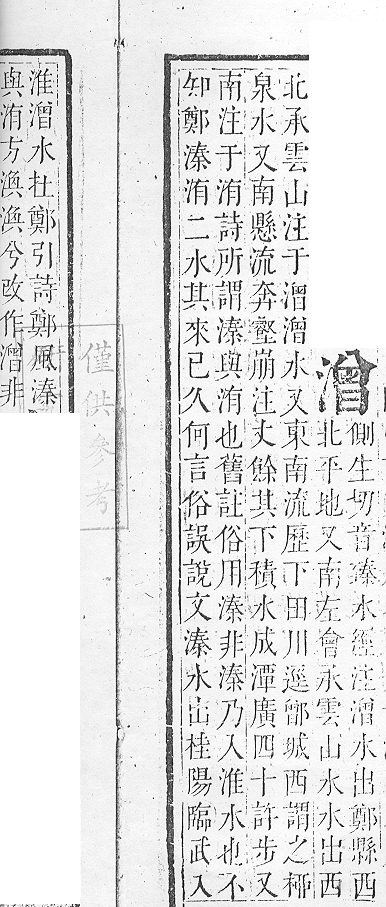 潧
側生切音臻水經注潧水出鄶縣西
北平地又南左會承雲山水水出西
北承雲山注于潧潧水又東南流歷下田川逕鄶城西謂之桺
泉水又南懸流奔壑崩注丈餘其下積水成潭廣四十許步又
南注于洧詩所謂溱與洧也舊註俗用溱非溱乃入淮水也不
知鄭溱洧二水其來已久何言俗誤說文溱水出桂陽臨武入
淮潧水杜鄭引詩鄭風溱
與洧方渙渙兮改作潧非
僅供參考